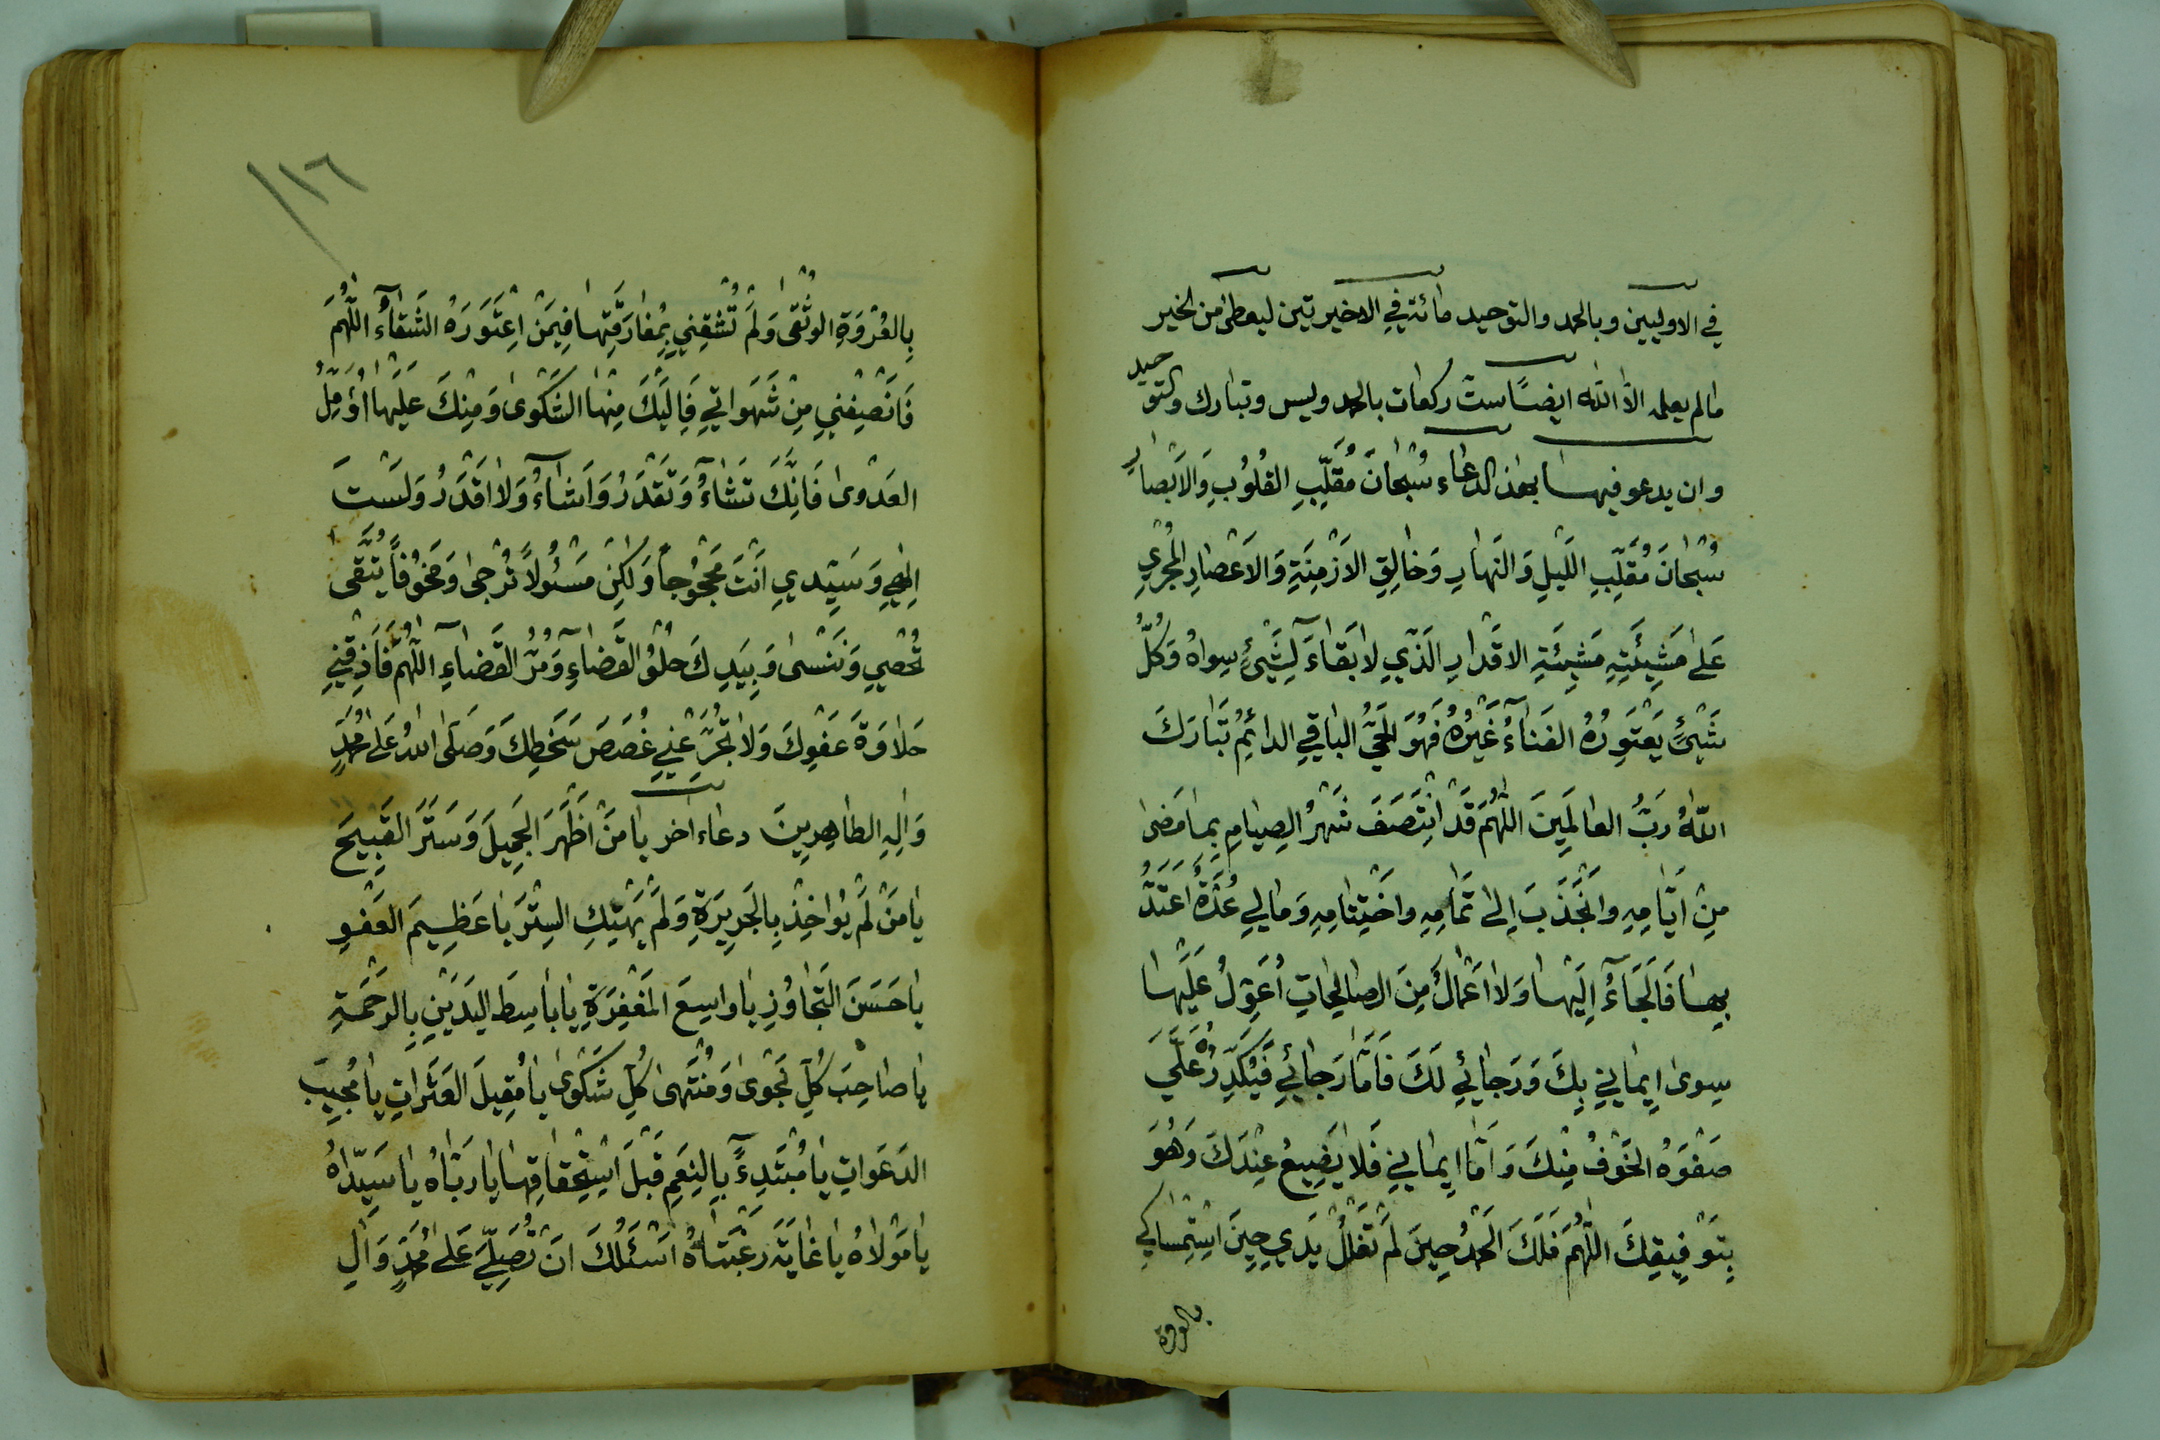 في الاوليين وبالحمد والتوحيد مائة في الاخيرتين ليعطى من الخير
مالم يعلمه الا الله ايضًا ست ركعات بالحمد ويس وتبارك والتوحيد
وان يدعو فيها بهذا الدعاء سُبْحانَ مُقَلِّبِ القُلُوبِ وَالاَبْصارِ
سُبْحانَ مُقَلِّبِ اللَّيلِ وَالنَهارِ وَخالِقِ الاَزْمِنَةِ وَالاَعْصارِ المُجْرِي
عَلى مَشِيئَتِهِ مَشِيئَةِ الاقْدارِ الَّذِي لابَقاءَ لِشَيْءٍ سِواهُ وَكُلُّ
شَيْءٍ يَعْتَوِرُهُ الفَناءُ غَيْرُهُ فَهُوَ الحَيُّ الباقِي الدائِمُ تَبارَكَ
اللهُ رَبُّ العالَمِينَ اللّهُمَّ قَدْ انْتَصَفَ شَهْرُ الصِيامِ بِما مَضى
مِنْ اَيّامِهِ وانْجَذَبَ اِلى تَمامِهِ واخْتِتامِهِ وَمالِي عُدَّةٌ اَعْتَدُّ
بِها فَالجَاءُ اِلَيْها وَلا اَعْمالٌ مِنَ الصالِحاتِ اُعَوِلُ عَلَيْها
سِوى اِيمانِي بِكَ وَرَجائِي لَكَ فَاَمّا رَجائِي فَيُكَدِّرُهُ عَلَيَّ
صَفْوَهُ الخَوْفُ مِنْكَ وَاَمّا اِيمانِي فَلا يَضِيعُ عِنْدَكَ وَهُوَ
بِتَوْفِيقِكَ اللّهُمَّ فَلَكَ الحَمْدُ حِينَ لَمْ تَغْلُلْ يَدِي حِينَ اسْتِمْساكِي
بالعروة
١١٦
بِالعُرْوَةِ الوُثْقى وَلَمْ تُشْقِنِي بِمُفارَقَتِها فِيمَنْ اِعْتَوَرَهُ الشَقاءُ اللّهُمَّ
فَانْصِفْنِي مِنْ شَهَواتِي فَاِلَيْكَ مِنْها الشَكْوى وَمِنْكَ عَلَيْها اُؤَمِّلُ
العَدْوى فَاِنَّكَ تَشاءُ وَتَقْدَرُ وَاَشاءُ وَلا اَقْدَرُ وَلَسْتَ
اِلهِي وَسَيِّدِي اَنْتَ مَحْجُوجاً وَلكِنْ مَسْئُولاً تُرْجى وَمَخُوفاً يُتَّقى
تُحْصِي وَنَنْسى وَبِيَدِكَ حُلْوُ القَضاءِ وَمُرُّ القَضاءِ اللّهُمَّ فَاَذِقْنِي
حَلاوَةَ عَفْوِكَ وَلا تُجَرِّعْنِي غُصَصَ سَخَطِكَ وَصَلَّى اللهُ عَلى مُحَمَّدٍ
وَالِهِ الطاهِرِينَ دعاء اخر يا مَنْ اَظْهَرَ الجَمِيلَ وَسَتَرَ القَبِيحَ
يامَنْ لَمْ يُواخِذْ بِالجَرِيرَةِ وَلَمْ يَهْتِكِ السِتْرَ يا عَظِيمَ العَفْوِ
ياحَسَنَ التَجاوُزِ يا واسِعَ المَغْفِرَةِ يا باسِطَ اليَدَيْنِ بِالرَحْمَةِ
ياصاحِبَ كُلِّ نَجْوى وَمُنْتَهى كُلِّ شَكْوى يا مُقِيلَ العَثَراتِ يا مُجِيبَ
الدَعَواتِ يا مُبْتَدِءً بِالنِعَمِ قَبْلَ اسْتِحْقاقِها يا رَبّاهُ يا سَيِّداهُ
يا مَوْلاهُ يا غايَةَ رَغْبَتاهُ اَسْئَلُكَ اَنْ تُصَلِّيَ عَلى مُحَمَّدٍ وَالِ